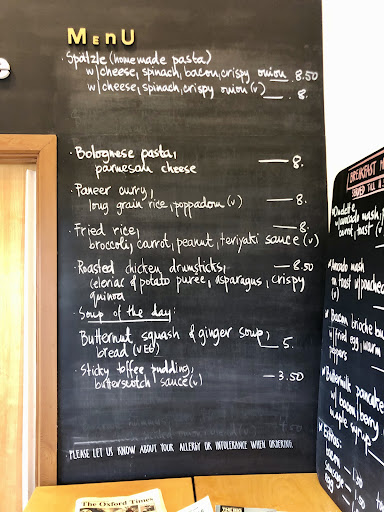 MEnU
· Spätzle (homemade pasta)
w/cheese, spinach, bacon, crispy onion 8.50
w/cheese, spinach, crispy onion (v) — 8.
· Bolognese pasta, — 8.
parmesan cheese
· Paneer curry, — 8.
long grain rice, poppadom (v)
· Fried rice, — 8.
broccoli, carrot, peanut, teriyaki sauce (v)
· Roasted chicken drumsticks, — 8.50
celeriac & potato puree, asparagus, crispy
quinoa
Soup of the day:
Butternut squash & ginger soup, — 5.
bread (VEG)
· Sticky toffee pudding, — 3.50
butterscotch sauce (v)
· PLEASE LET US KNOW ABOUT YOUR ALLERGY OR INTOLERANCE WHEN ORDERING.
BREAKFAST
SERVED TILL
Omelette
w/avocado mash,
carrot, toast (v)
Avocado mash
on toast w/poached
(v)
Bacon brioche
w/fried egg, warm
peppers
Buttermilk pancake
w/bacon, berry
maple syrup
Extras:
bacon
sausage
egg
The Oxford Times